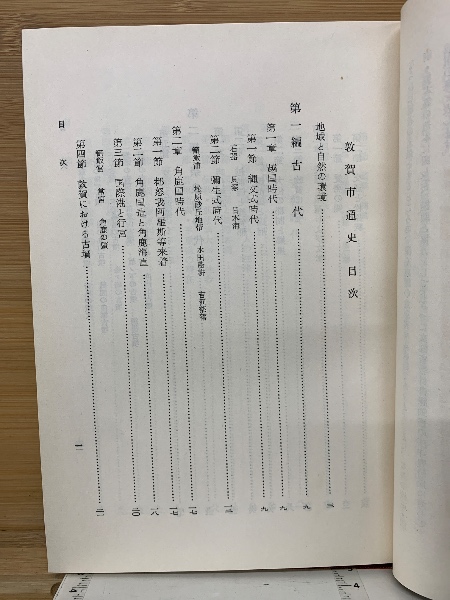 敦賀市通史 目次
地域と自然の環境
第一編 古代
九
第一章 越国時代
九
第一節 縄文式時代
九
土器 貝塚 日本海
第二節 弥生式時代
第二章 角鹿国時代
一七
第一節 都怒我阿羅斯等来着
一八
第二節 角鹿国造と角鹿海直
二〇
第三節 国際港と行宮
第四節 敦賀における古墳
目次